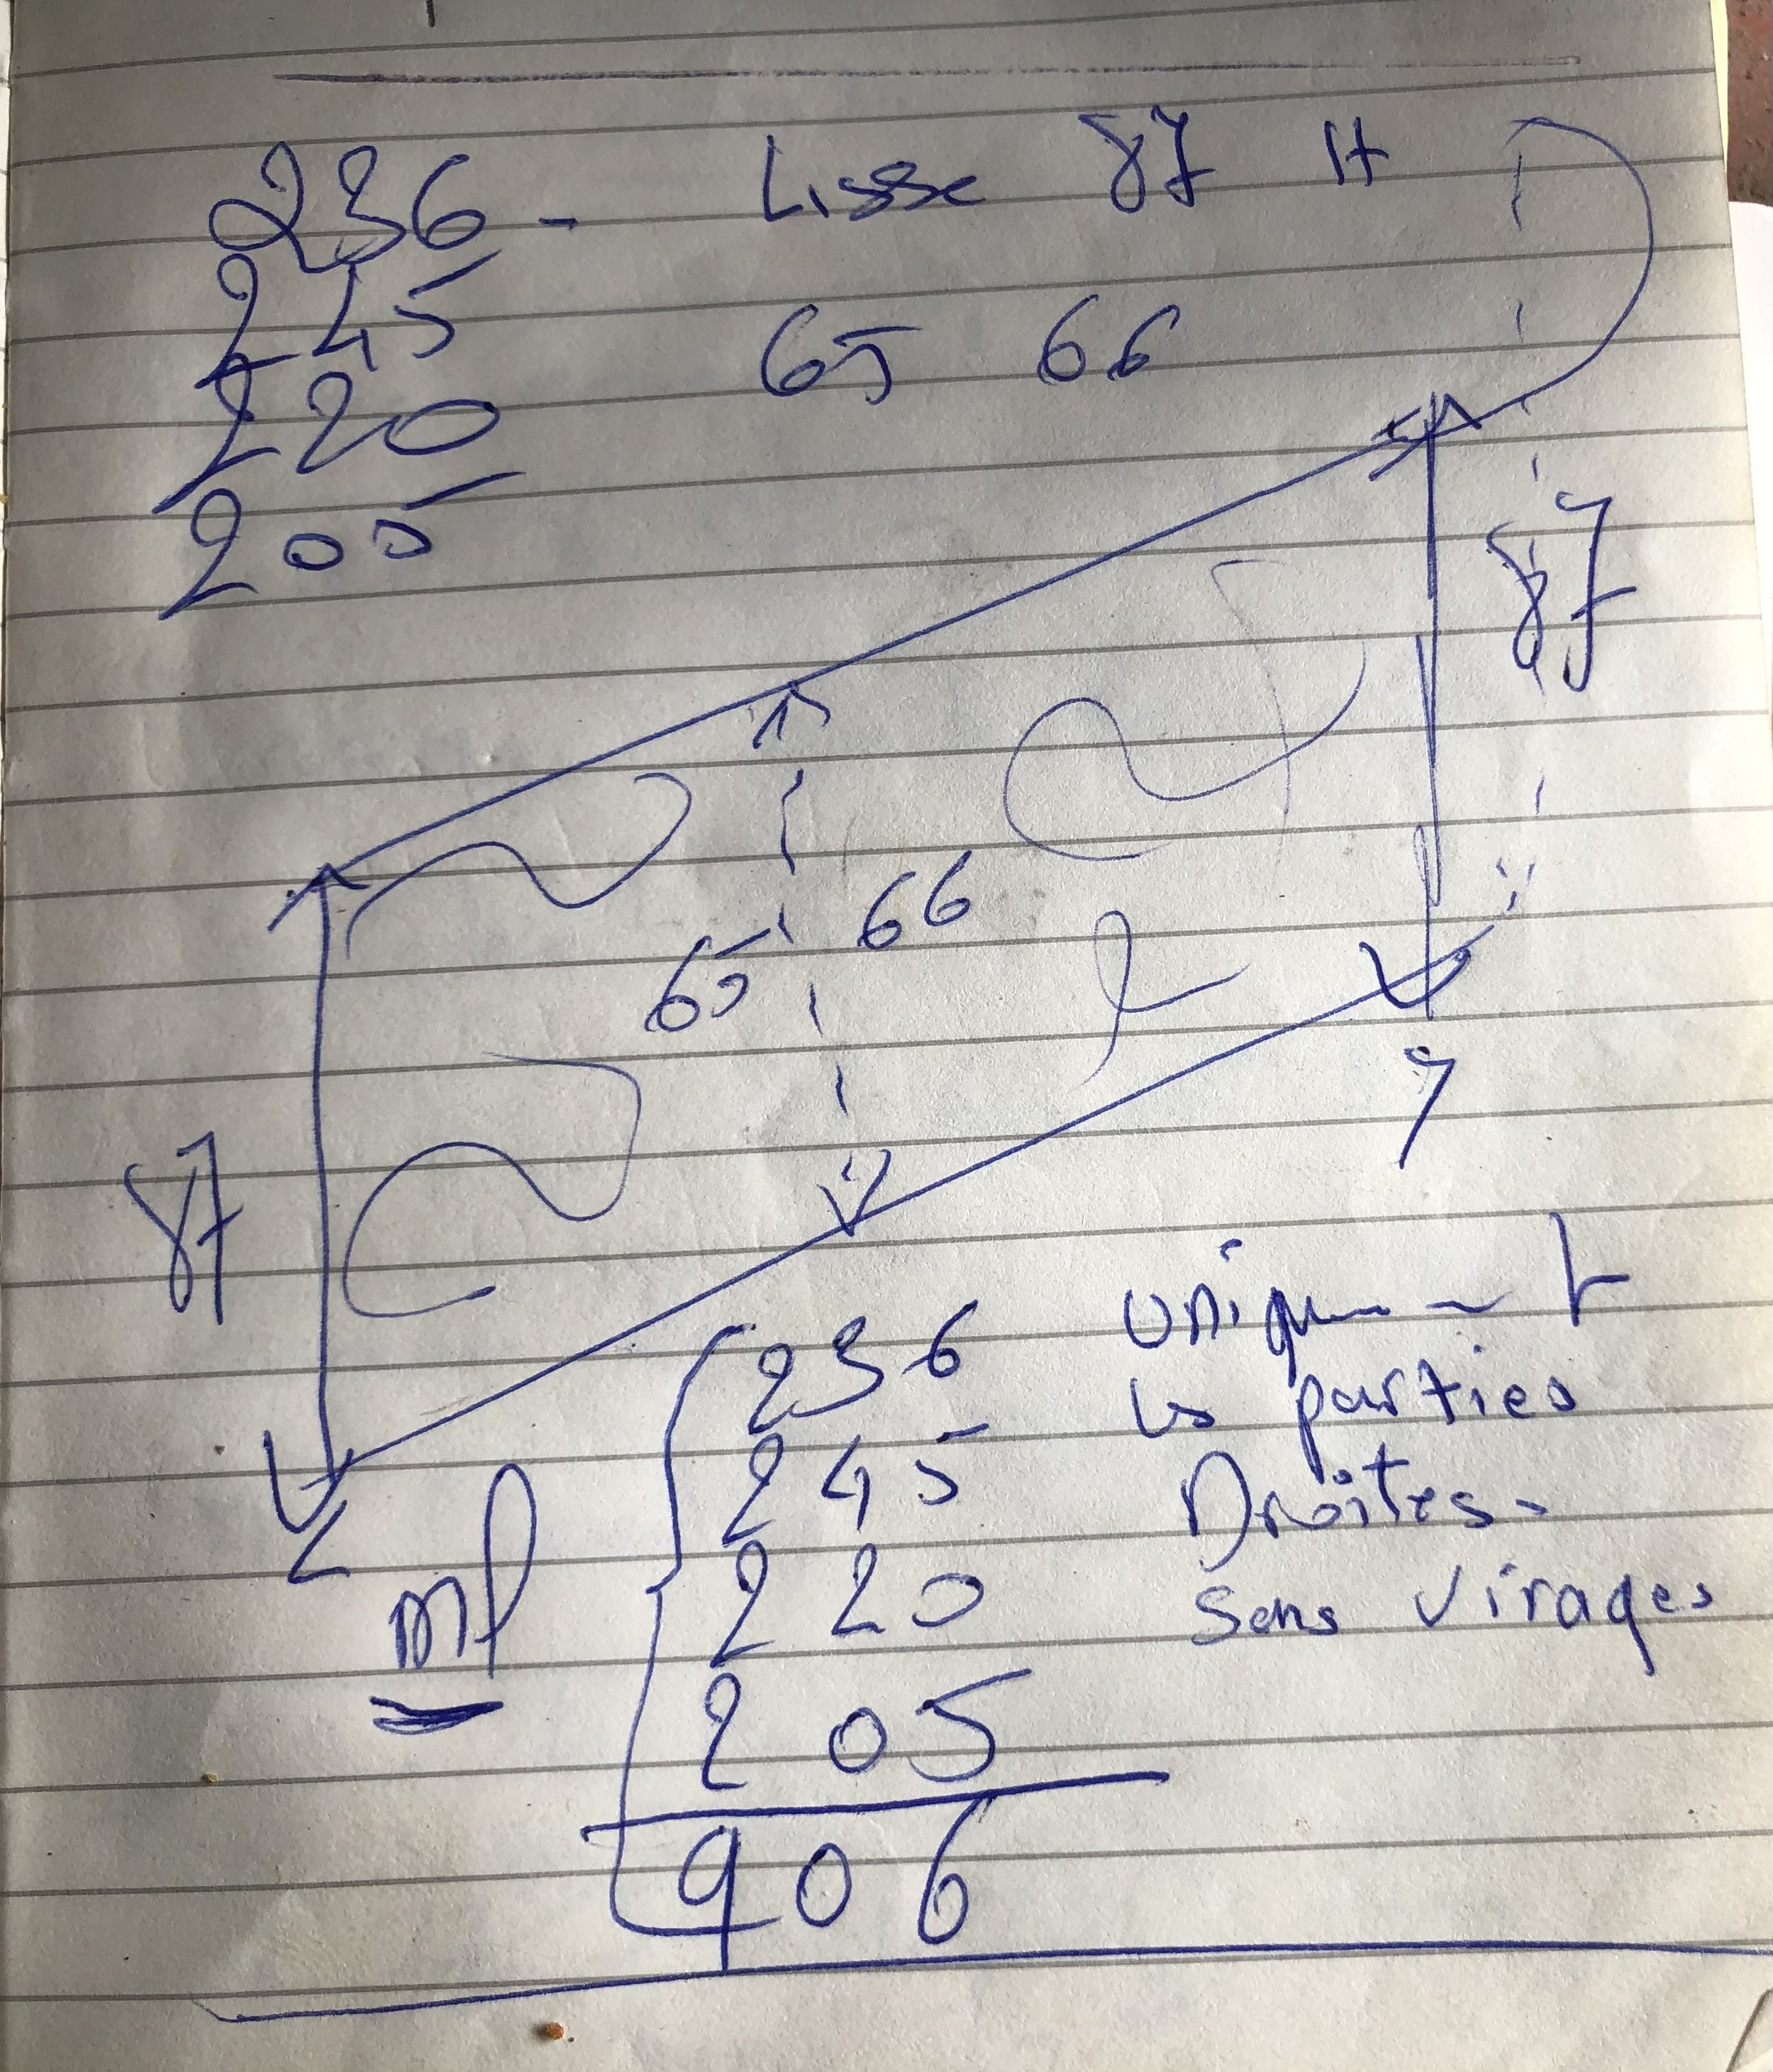 236 - Lisse 87 H
245
65 66
220
205
87
66
65
87
236 uniquement
les parties
245
Droites.
220
sans virages
ml
205
906